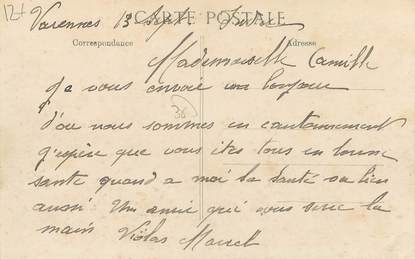 12+
CARTE POSTALE
Varennes 13 Sept.
Correspondance
Adresse
Mademoiselle Camille
Je vous envoie un bonjour
36
d'ou nous sommes en cantonnement
j'espère que vous ites tous en bonne
sante quand a moi la santé va bien
aussi. Un amie qui vous serre la
main Violas Marcel